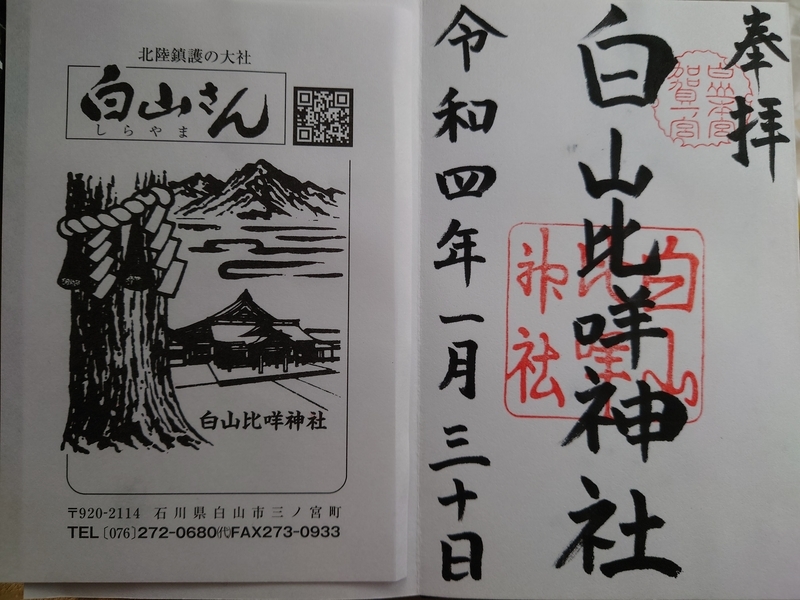 北陸鎮護の大社
白山さん
しらやま
白山比咩神社
〒920-2114 石川県白山市三ノ宮町
TEL〔076〕272-0680㈹FAX273-0933
奉拝
白山比咩神社
令和四年一月三十日
白山
比咩
神社